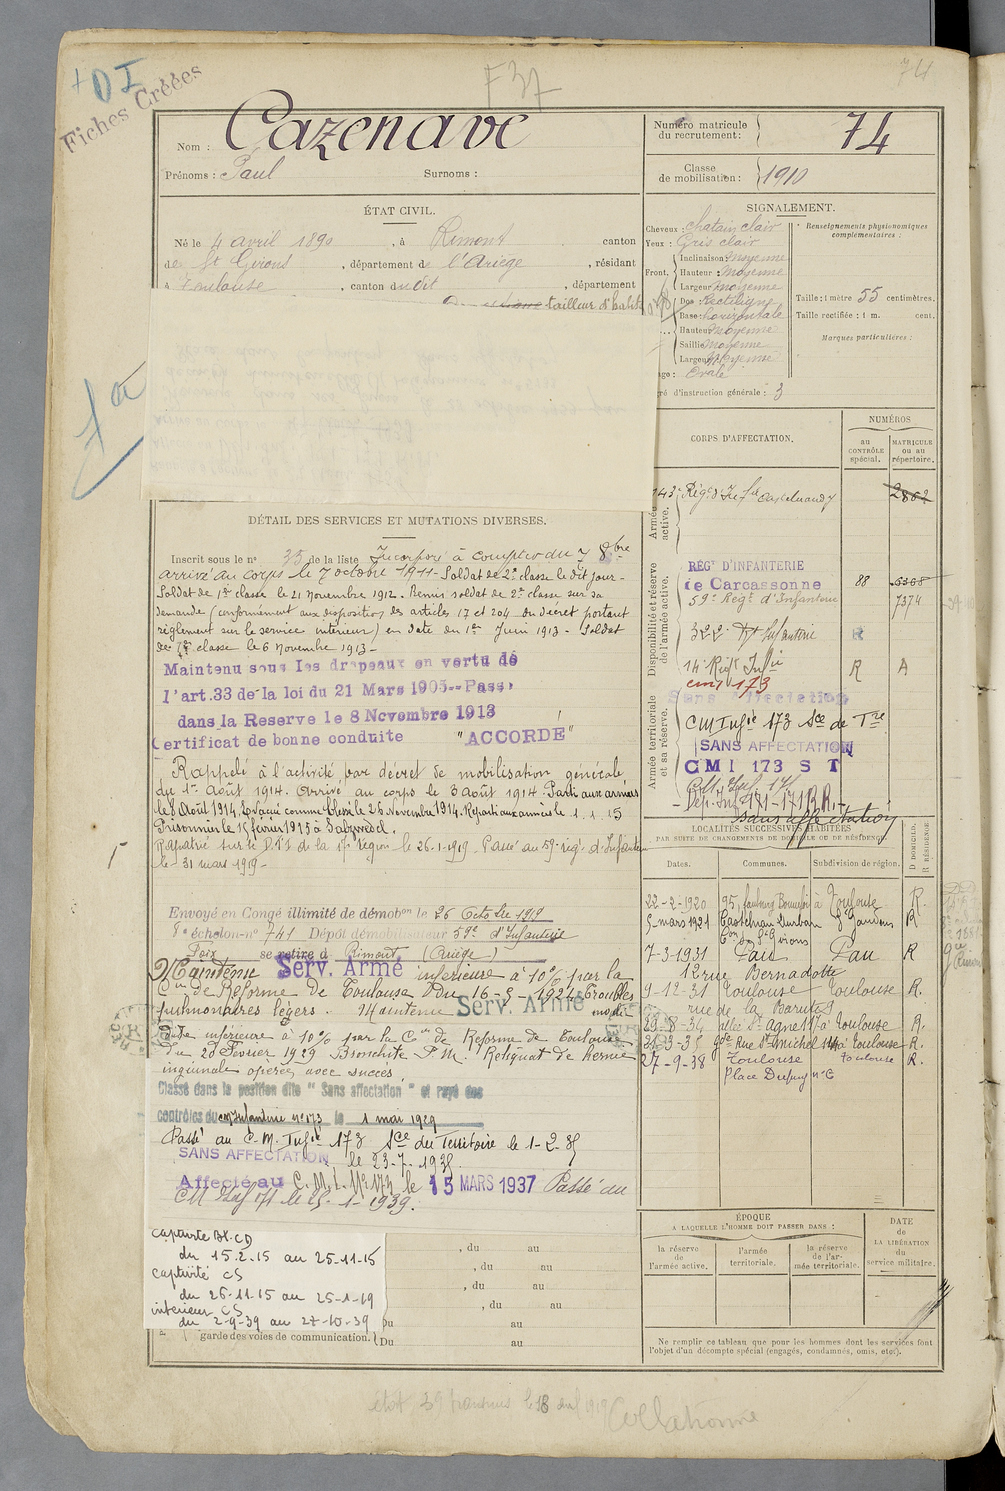 + D I
Fiches Créées
F 37
74
Nom : Cazenave
Prénoms : Paul Surnoms :
Numéro matricule du recrutement: 74
Classe de mobilisation: 1910
ÉTAT CIVIL.
Né le 4 avril 1890, à Rimont canton
de St Girons, département de l'Ariège, résidant
à Toulouse, canton dudit, département
tailleur d'habits
SIGNALEMENT.
Cheveux : Chatain clair
Yeux : Gris clair
Inclinaison: moyenne
Front, Hauteur : moyenne
Largeur moyenne
Dos : Rectiligne
Base: horizontale
Hauteur Moyenne
Saillie moyenne
Largeur Moyenne
Ovale
d'instruction générale : 3
Renseignements physionomiques complémentaires :
Taille: 1 mètre 55 centimètres.
Taille rectifiée : 1 m. cent.
Marques particulières :
CORPS D'AFFECTATION.
NUMÉROS
au CONTRÔLE spécial.
MATRICULE ou au répertoire.
Armée active.
143e Régt d'Inf. Castelnaudary 2862
Disponibilité et réserve de l'armée active.
RÉGt D'INFANTERIE
de Carcassonne 88 6368
59e Régt d'Infanterie 7374
322e Rt Infanterie R
14e Régt Infie R A
cmi 173
Armée territoriale et sa réserve.
Sans Affectation
CM Infie 173 Sce de Tre
SANS AFFECTATION
CMI 173 S T
Dép. Inf. 171-171 R.R.
sans affectation
DÉTAIL DES SERVICES ET MUTATIONS DIVERSES.
Inscrit sous le no 35 de la liste Incorporé à compter du 7 8bre
arrivé au corps le 7 octobre 1911 - Soldat de 2e classe le dit jour -
Soldat de 1re classe le 21 Novembre 1912. Remis soldat de 2e classe sur sa
demande (conformément aux disposition des articles 17 et 204 du décret portant
règlement sur le service intérieur) en date du 1er Juin 1913 - Soldat
de 1re classe le 6 Novembre 1913 -
Maintenu sous les drapeaux en vertu de
l'art.33 de la loi du 21 Mars 1905--Passé
dans la Reserve le 8 Novembre 1913
Certificat de bonne conduite "ACCORDÉ"
Rappelé à l'activité par décret de mobilisation générale
du 1er Août 1914. Arrivé au corps le 3 août 1914. Parti aux armées
le 8 Août 1914, Evacué comme blessé le 26 Novembre 1914. Reparti aux armées le 1.1.15
Prisonnier le 15 février 1915 à Salzwedel.
Rapatrié le 26-1-1919. Passé au 59e rég. d'Infanterie
le 31 mars 1919 -
Envoyé en Congé illimité de démobon le 26 Octobre 1919
8e échelon-no 741 Dépôt démobilisateur 59e d'Infanterie
Foix se retire à Rimont (Ariège)
Maintenu Serv. Armé inférieure à 10% par la
Con de Réforme de Toulouse Du 16-5-1924 Troubles
pulmonaires légers. Maintenu Serv. Armé
inférieure à 10% par la Con de Réforme de Toulouse
du 20 Février 1929 Bronchite P.M. Reliquat de hernie
inguinale opérée avec succès
Classé dans la position dite "Sans affectation" et rayé des
contrôles du CM Infanterie no 173 le 1 mai 1929
Passé au C.M. Infie 173 Sce du Territoire le 1-2-35
SANS AFFECTATION le 23-7-1935
Affecté au C.M.I. No 173 le 15 MARS 1937 Passé au
CM Inf 171 le 25-1-1939.
LOCALITÉS SUCCESSIVES HABITÉES
PAR SUITE DE CHANGEMENTS DE DOMICILE OU DE RÉSIDENCE.
Dates. Communes. Subdivision de région. D DOMICILE. R RÉSIDENCE.
22-2-1920 95, faubourg Bonnefoi à Toulouse R.
5-mars 1921 Castelnau Durban St Gaudens R
Con de St Girons
7-3-1931 Pau Pau R
12 rue Bernadotte
9-12-31 Toulouse Toulouse R.
rue de la
29-8-34 allée St Agne à Toulouse R.
Gde Rue St Michel à Toulouse R.
27-9-38 Toulouse Toulouse R.
Place Dupuy no 6
ÉPOQUE
A LAQUELLE L'HOMME DOIT PASSER DANS :
la réserve de l'armée active.
l'armée territoriale.
la réserve de l'armée territoriale.
DATE DE LA LIBÉRATION du service militaire.
capture Bl. CD
du 15.2.15 au 25-11-15
captivité CS
du 26-11-15 au 25-1-19
intérieur CS
du 2-9-39 au 27-10-39
, du au
, du au
, du au
, du au
Du au
garde des voies de communication. Du au
Ne remplir ce tableau que pour les hommes dont les services font
l'objet d'un décompte spécial (engagés, condamnés, omis, etc.).